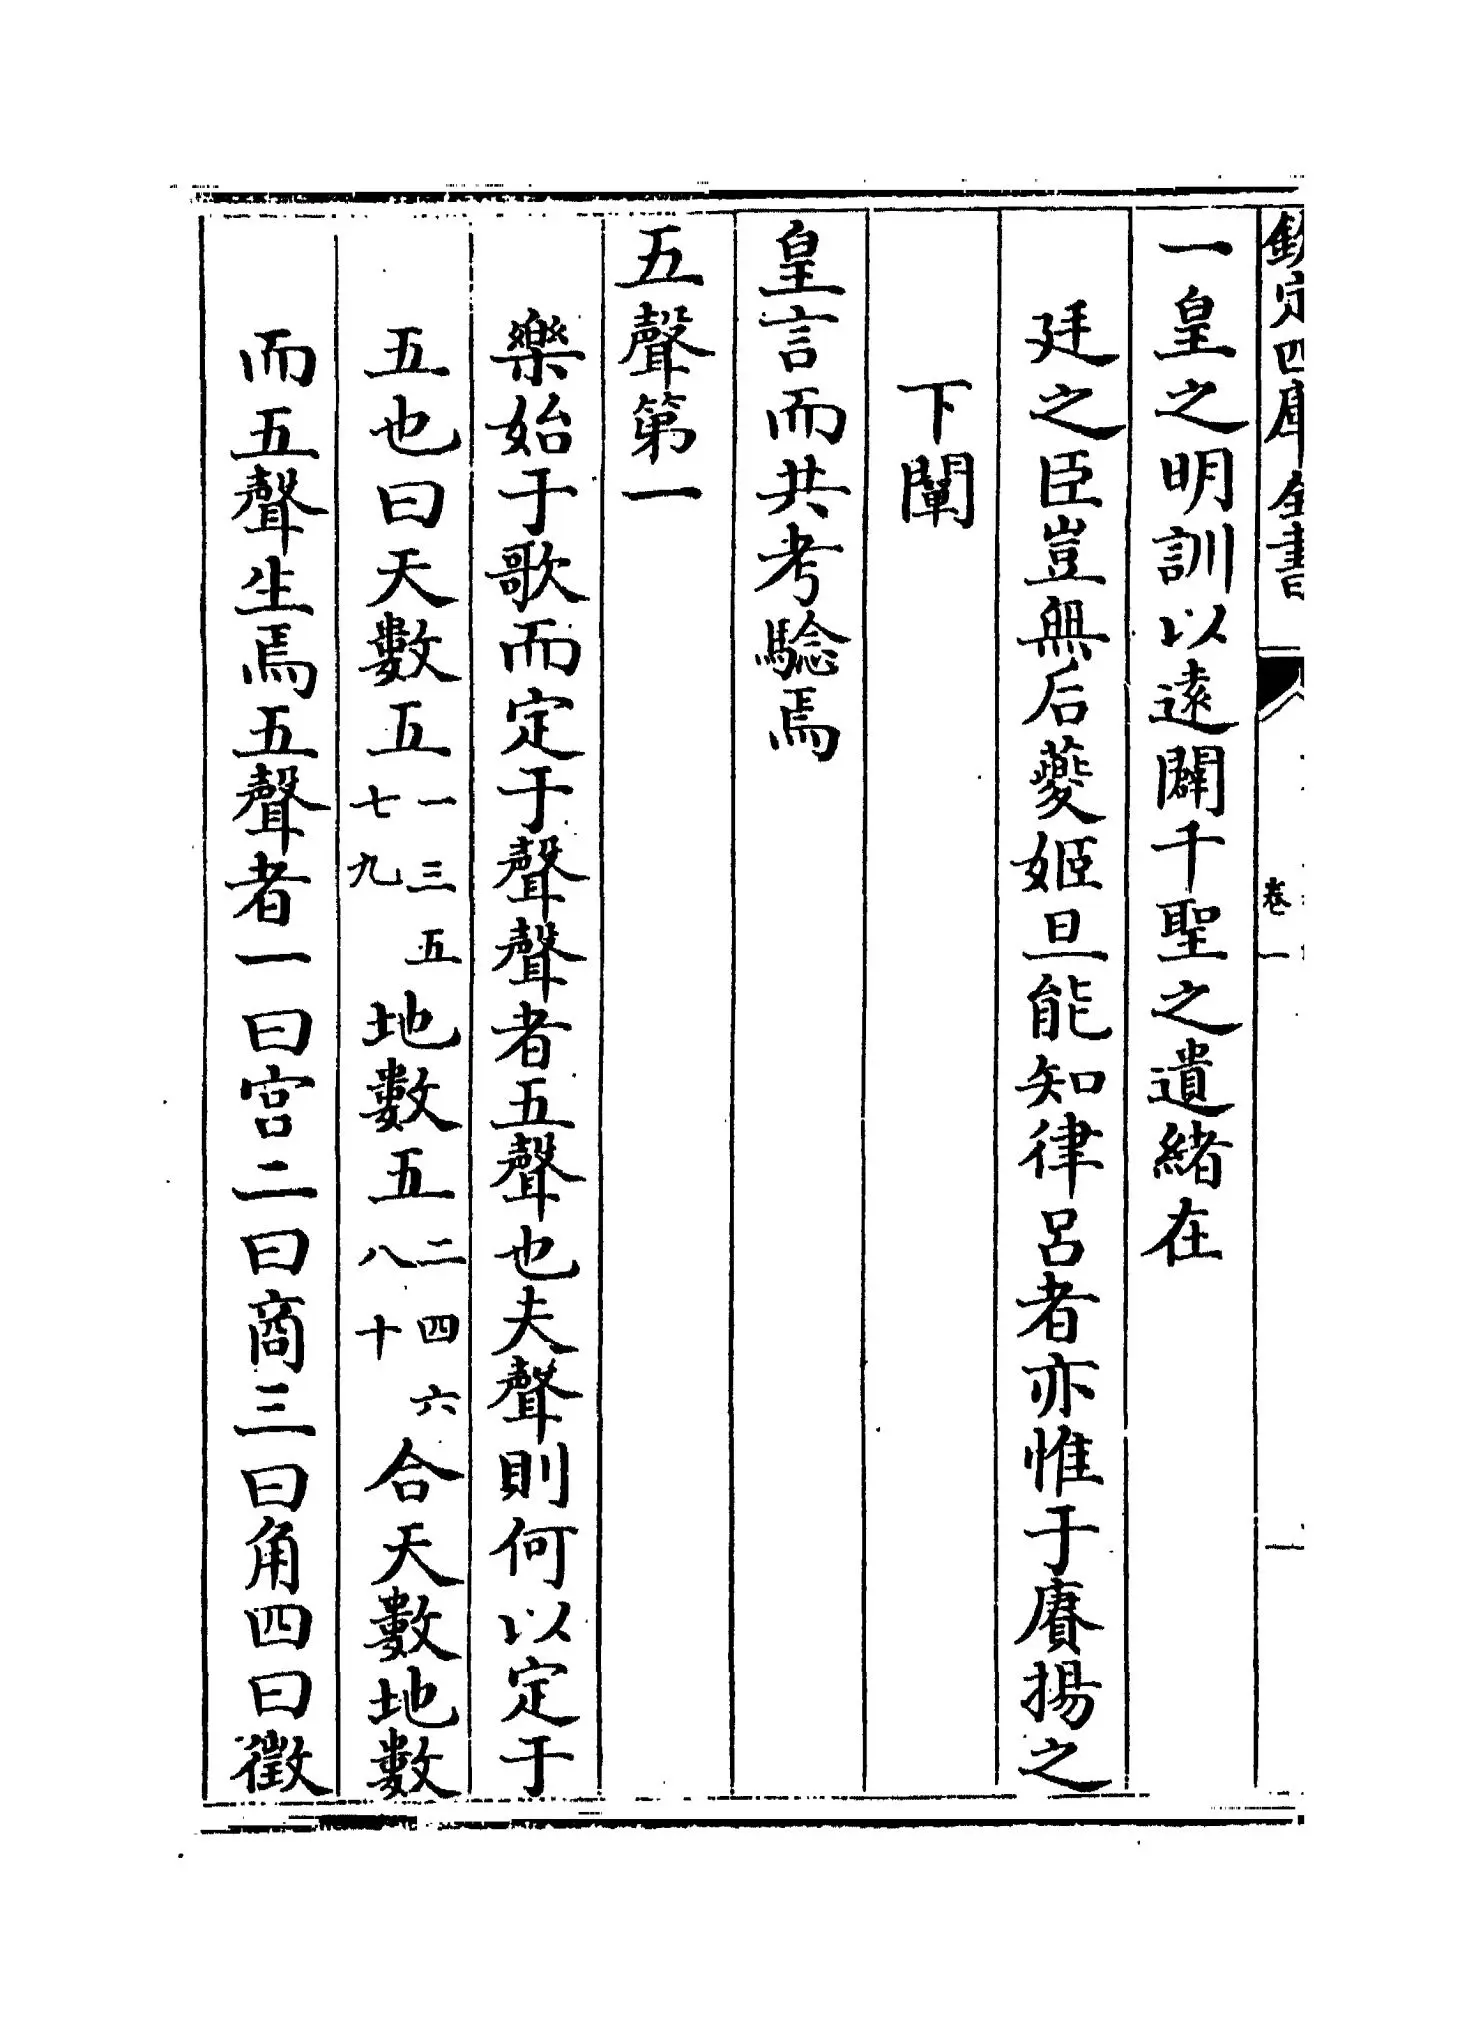 欽定四庫全書
卷一
一
一皇之明訓以遠闢千聖之遺緒在
廷之臣豈無后夔姬旦能知律呂者亦惟于賡揚之
下闡
皇言而共考驗焉
五聲第一
樂始于歌而定于聲聲者五聲也夫聲則何以定于
五也曰天數五一三五七九地數五二四六八十合天數地數
而五聲生焉五聲者一曰宫二曰商三曰角四曰徵